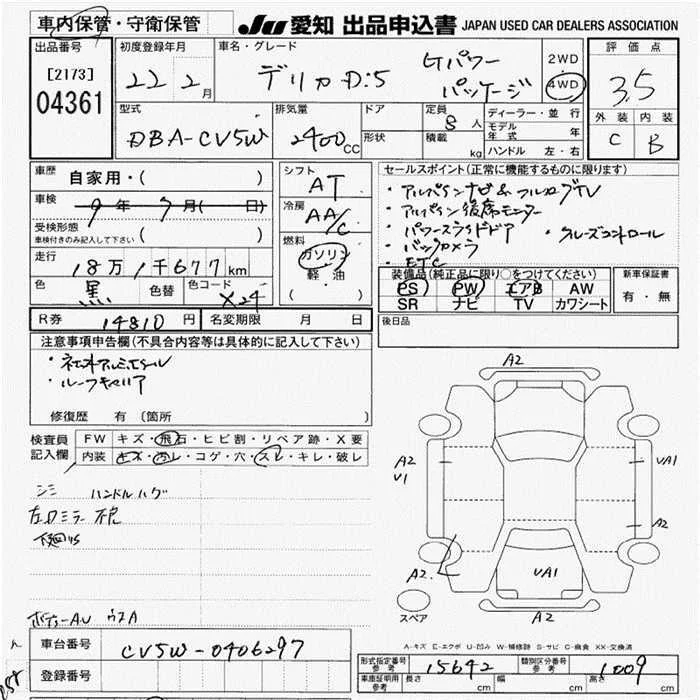 車内保管・守衛保管
JU 愛知 出品申込書 JAPAN USED CAR DEALERS ASSOCIATION
出品番号 初度登録年月 車名・グレード 評価点
[2173]
04361
22年 2月
デリカD:5 Gパワーパッケージ
2WD
4WD
3.5
型式 排気量 ドア 定員 ディーラー・並行 外装 内装
DBA-CV5W 2400CC 8人
形状 積載 kg
モデル年式 年
ハンドル 左・右
C B
車歴 自家用・( )
車検 9年7月( 日)
受検形態
車検付きのみ記入して下さい ( )
走行 18万1千677km
色 黒 色替 色コード X24
シフト AT
冷房 AA/C
燃料 ガソリン
軽・油
( ・ )
セールスポイント(正常に機能するものに限ります)
・アルパインナビ&フルセグTV
・アルパイン後席モニター
・パワースライドドア ・クルーズコントロール
・バックカメラ
・ETC
装備品(純正品に限り○をつけてください) 新車保証書
PS PW エアB AW
SR ナビ TV カワシート
有・無
R券 14810円 名変期限 月 日
後日品
注意事項申告欄(不具合内容等は具体的に記入して下さい)
・社外アルミホイール
・ルーフキャリア
修復歴 有(箇所 )
検査員記入欄
FW キズ・飛石・ヒビ割・リペア跡・X要
内装 キズ・汚レ・コゲ・穴・スレ・キレ・破レ
シミ ハンドルハゲ
左ドミラー
下廻りS
A2
A2
V1
VA1
A2
A2
VA1
A2
スペア
A-キズ E-エクボ U-凹み W-補修跡 S-サビ C-腐食 XX-交換済
車台番号 CV5W-0406297
登録番号
形式指定番号 参考 15642 類別区分番号 参考 1009
車庫証明用 参考 長さ cm 幅 cm 高さ cm